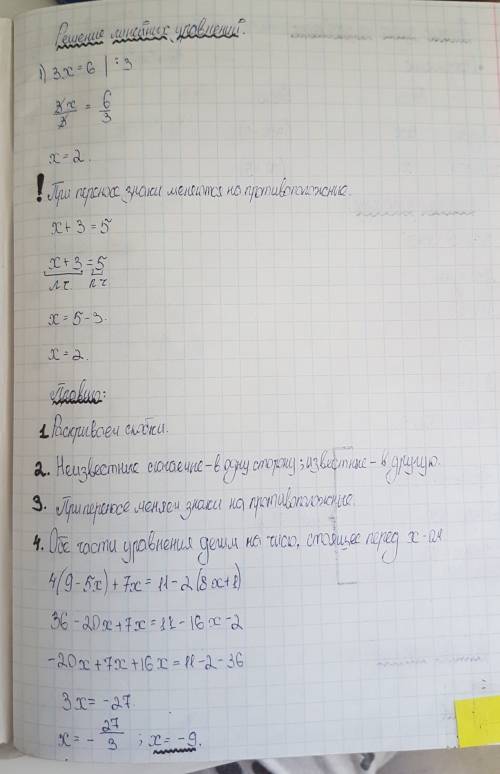 Решение линейных уравнений.
1) 3x=6 | :3
3x/3 = 6/3
x=2.
! При переносе знаки меняются на противоположные.
x+3=5
x+3=5
л.ч. п.ч
x=5-3.
x=2.
Правило:
1. Раскриваем скобки.
2. Неизвестные слагаемые - в одну сторону; известные - в другую.
3. При переносе меняем знаки на противоположные.
4. Обе части уравнения делим на число, стоящее перед x-ом
4(9-5x)+7x=11-2(8x+1)
36-20x+7x=11-16x-2
-20x+7x+16x=11-2-36
3x=-27.
x=-27/3 ; x=-9.